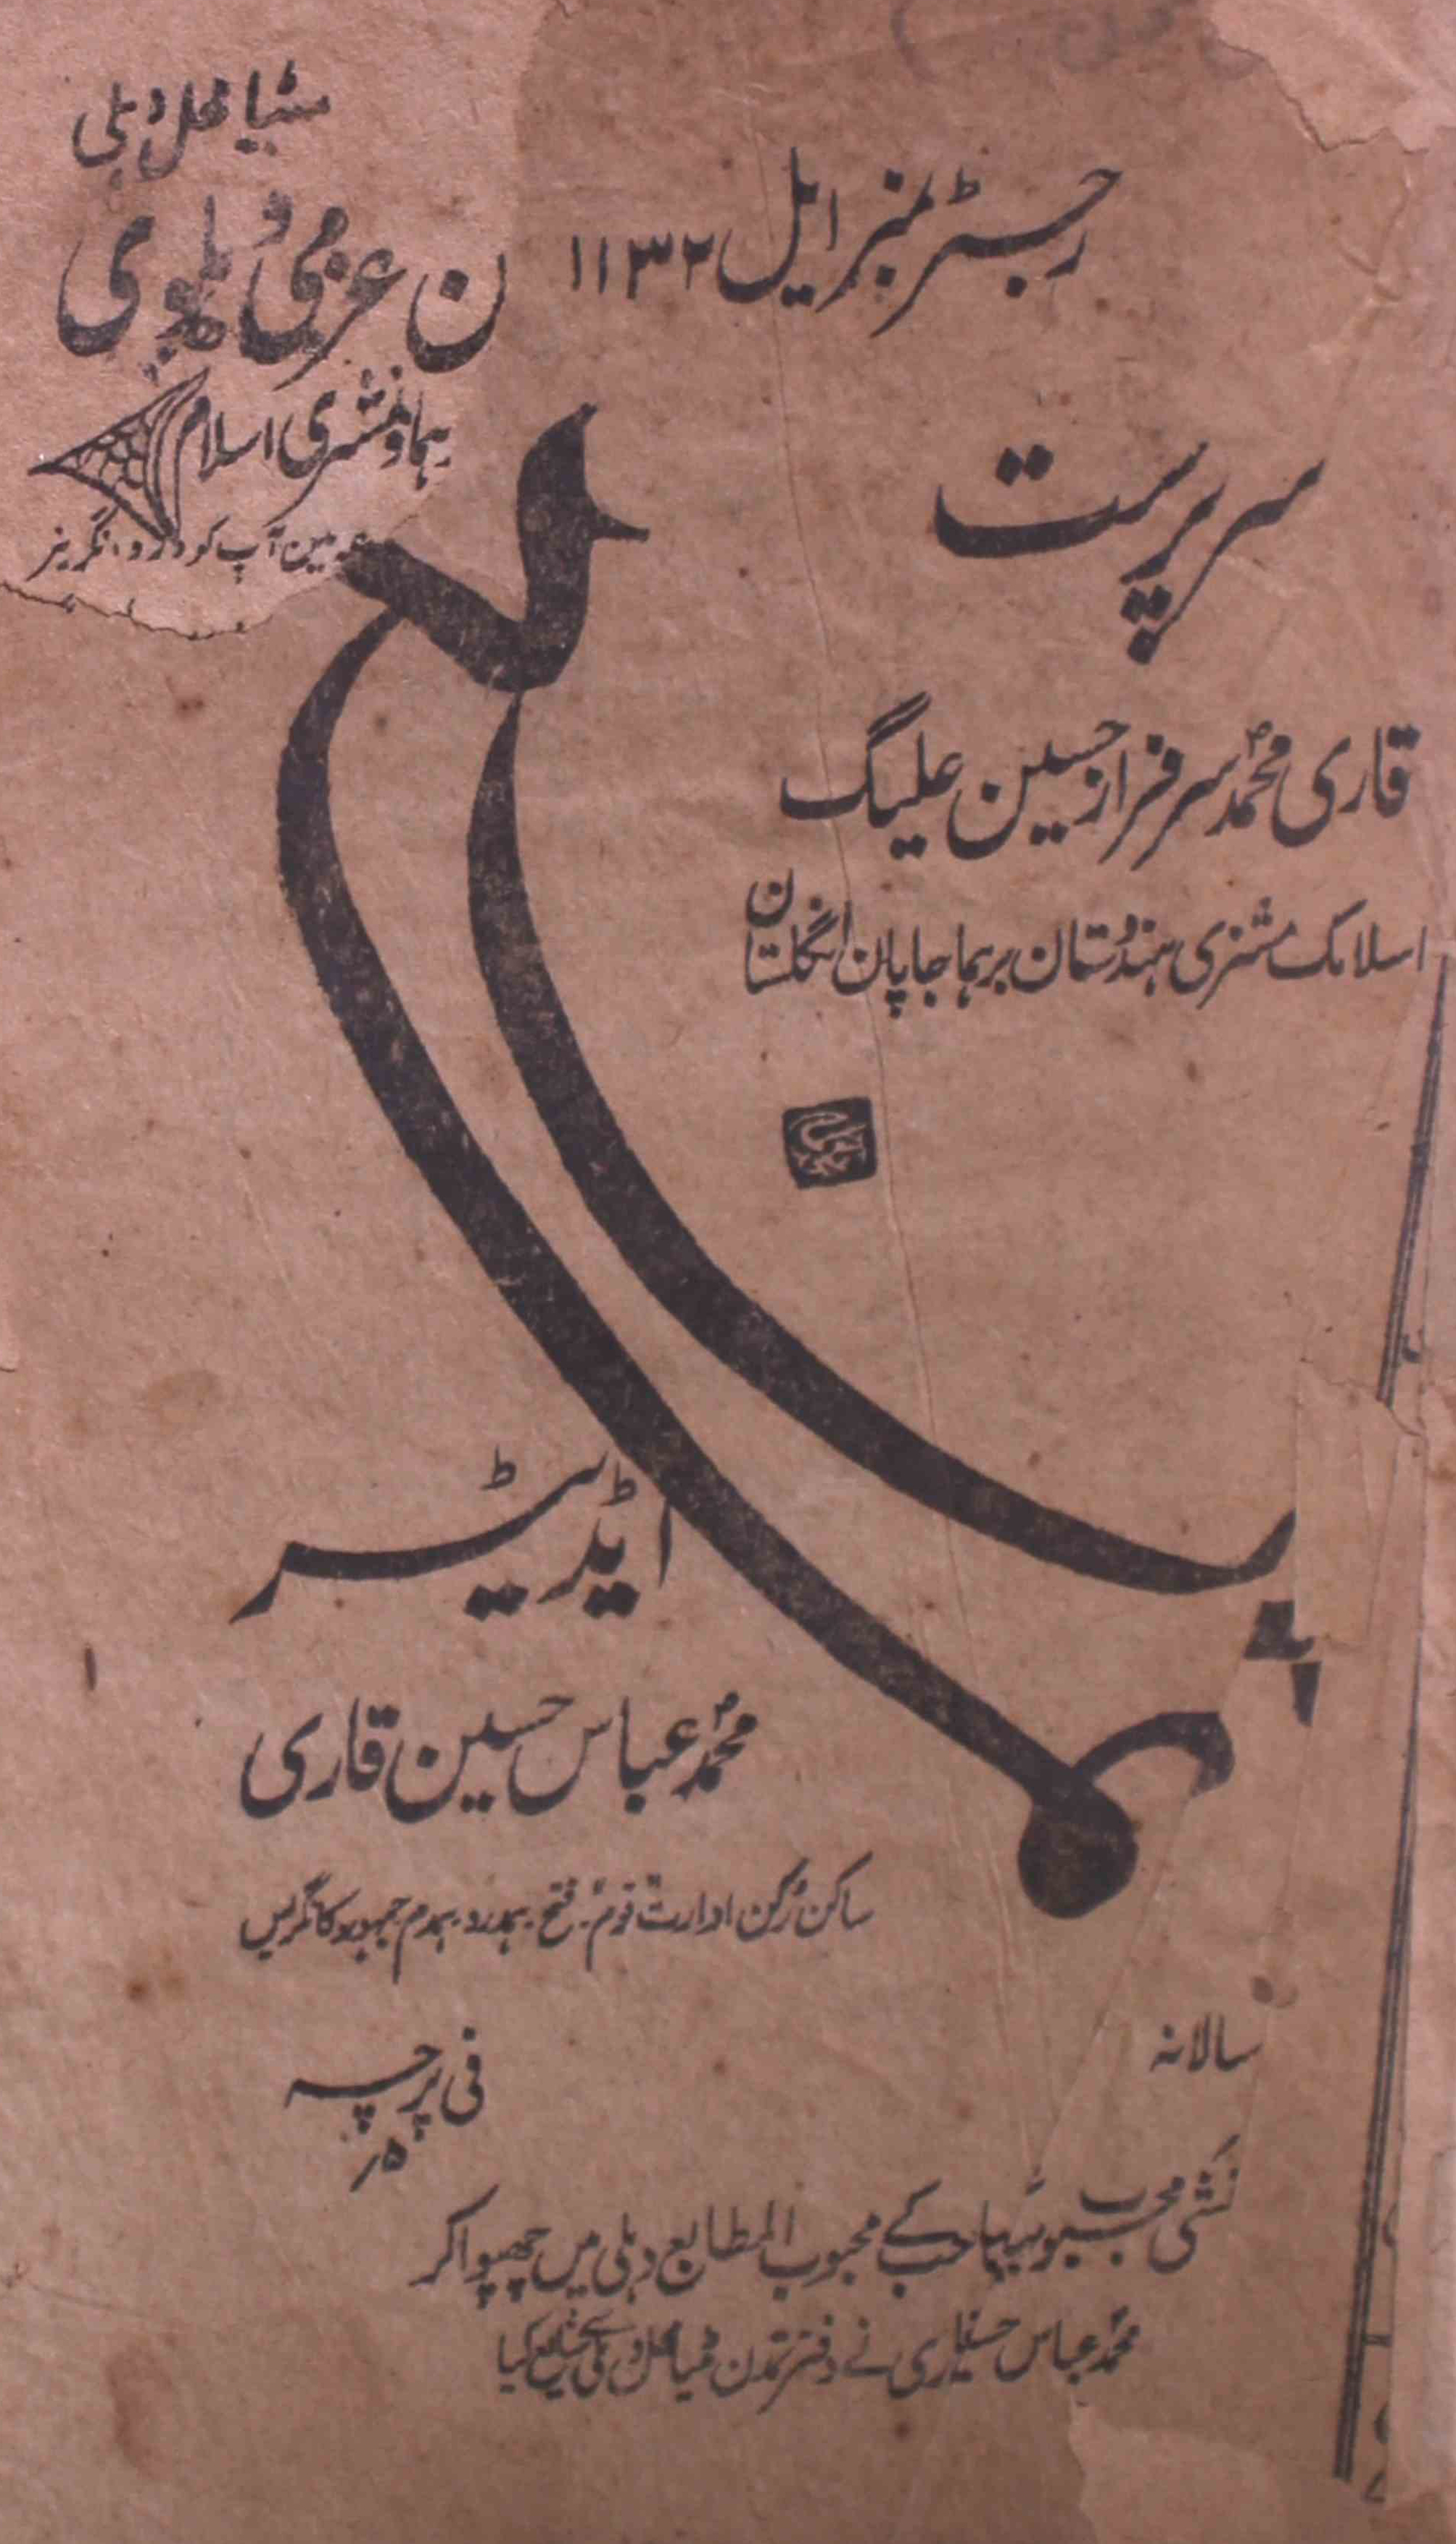 مٹیا محل دہلی
رجسٹر نمبر ایل ۱۱۳۲
ن عزمی دہلوی
برہما و مشنری اسلام
میں آپ کو
سرپرست
قاری محمد سرفراز حسین علیگ
اسلامک مشنری ہندوستان برہما جاپان انگلستان
ایڈیٹر
محمد عباس حسین قاری
ساکن رکن ادارت قوم۔ فتح۔ ہمدرد۔ ہمدم جمہور کانگریس
سالانہ
فی پرچہ
۵ر
کے محبوب المطابع دہلی میں چھپوا کر
محمد عباس حسین قاری نے دفتر تمدن مٹیا محل دہلی سے شایع کیا